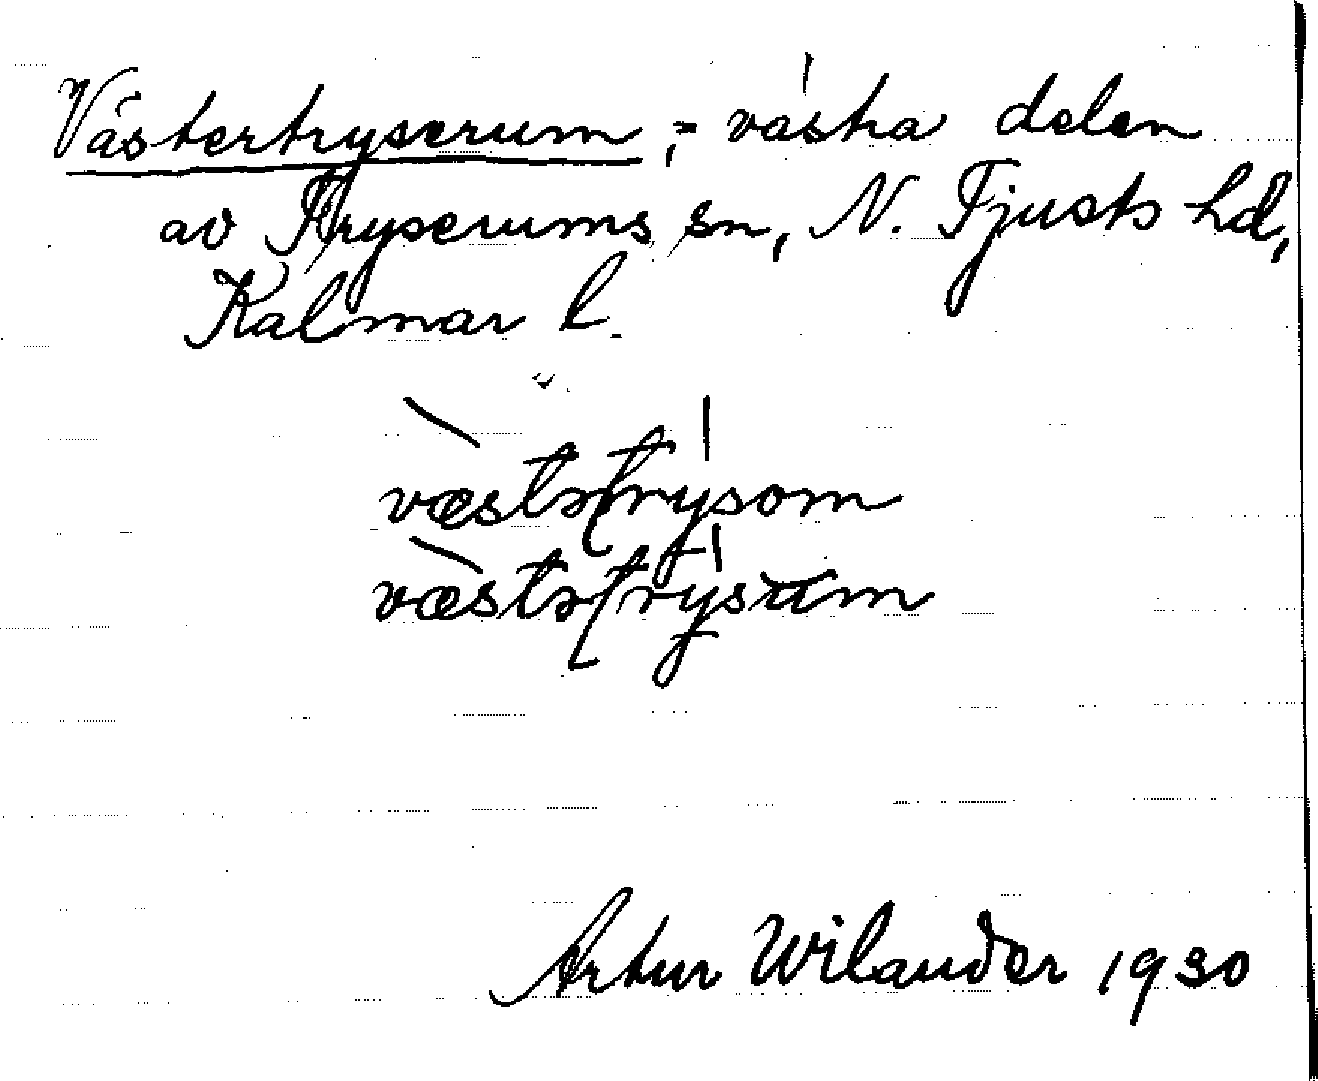 Västertryserum, = västra delen
av Tryserums sn, N. Tjusts hd,
Kalmar l.
væstətrysom
væstətrysum
Artur Wilander 1930